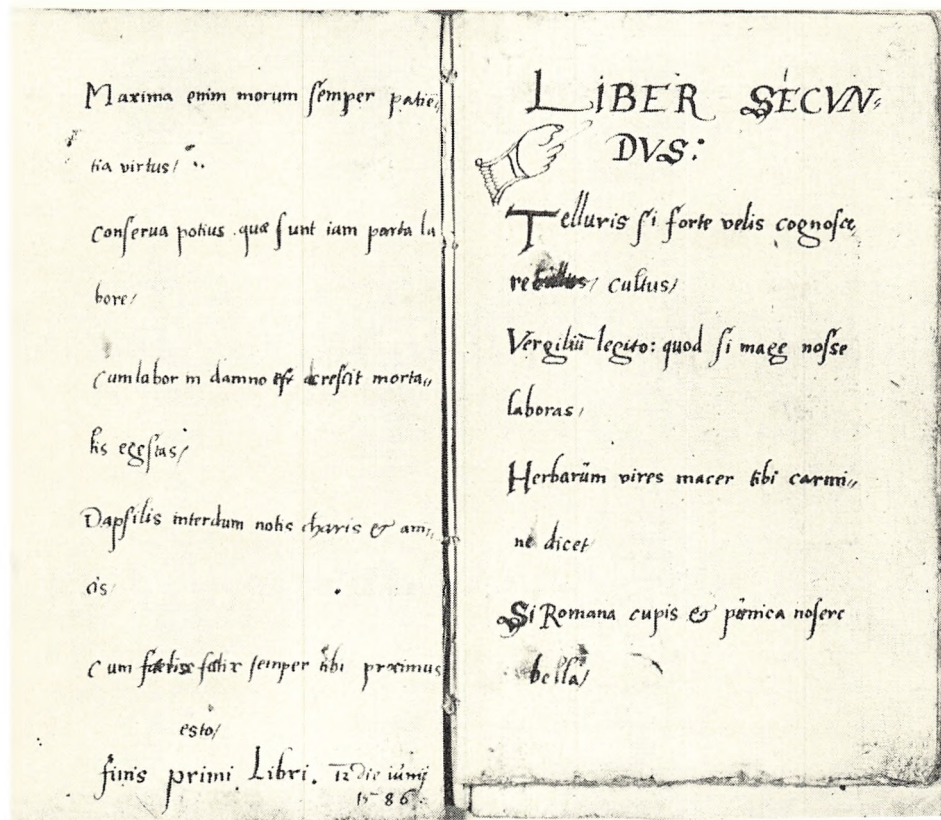 Maxima enim morum semper patiē„
tia virtus/
conserua potius quæ sunt iam parta la
bore/
cum labor in damno est crescit morta„
lis egestas/
Dapsilis interdum notis charis & ami„
cis/
cum felix semper tibi proximus
esto/
finis primi Libri. 12 die iunij
1586
LIBER SECVN„
DVS:
Telluris si forte velis cognosce„
re cultus/
Vergiliū legito: quod si mage nosse
laboras/
Herbarūm vires macer tibi carmi„
ne dicet
Si Romana cupis & pœnica noscere
bella/